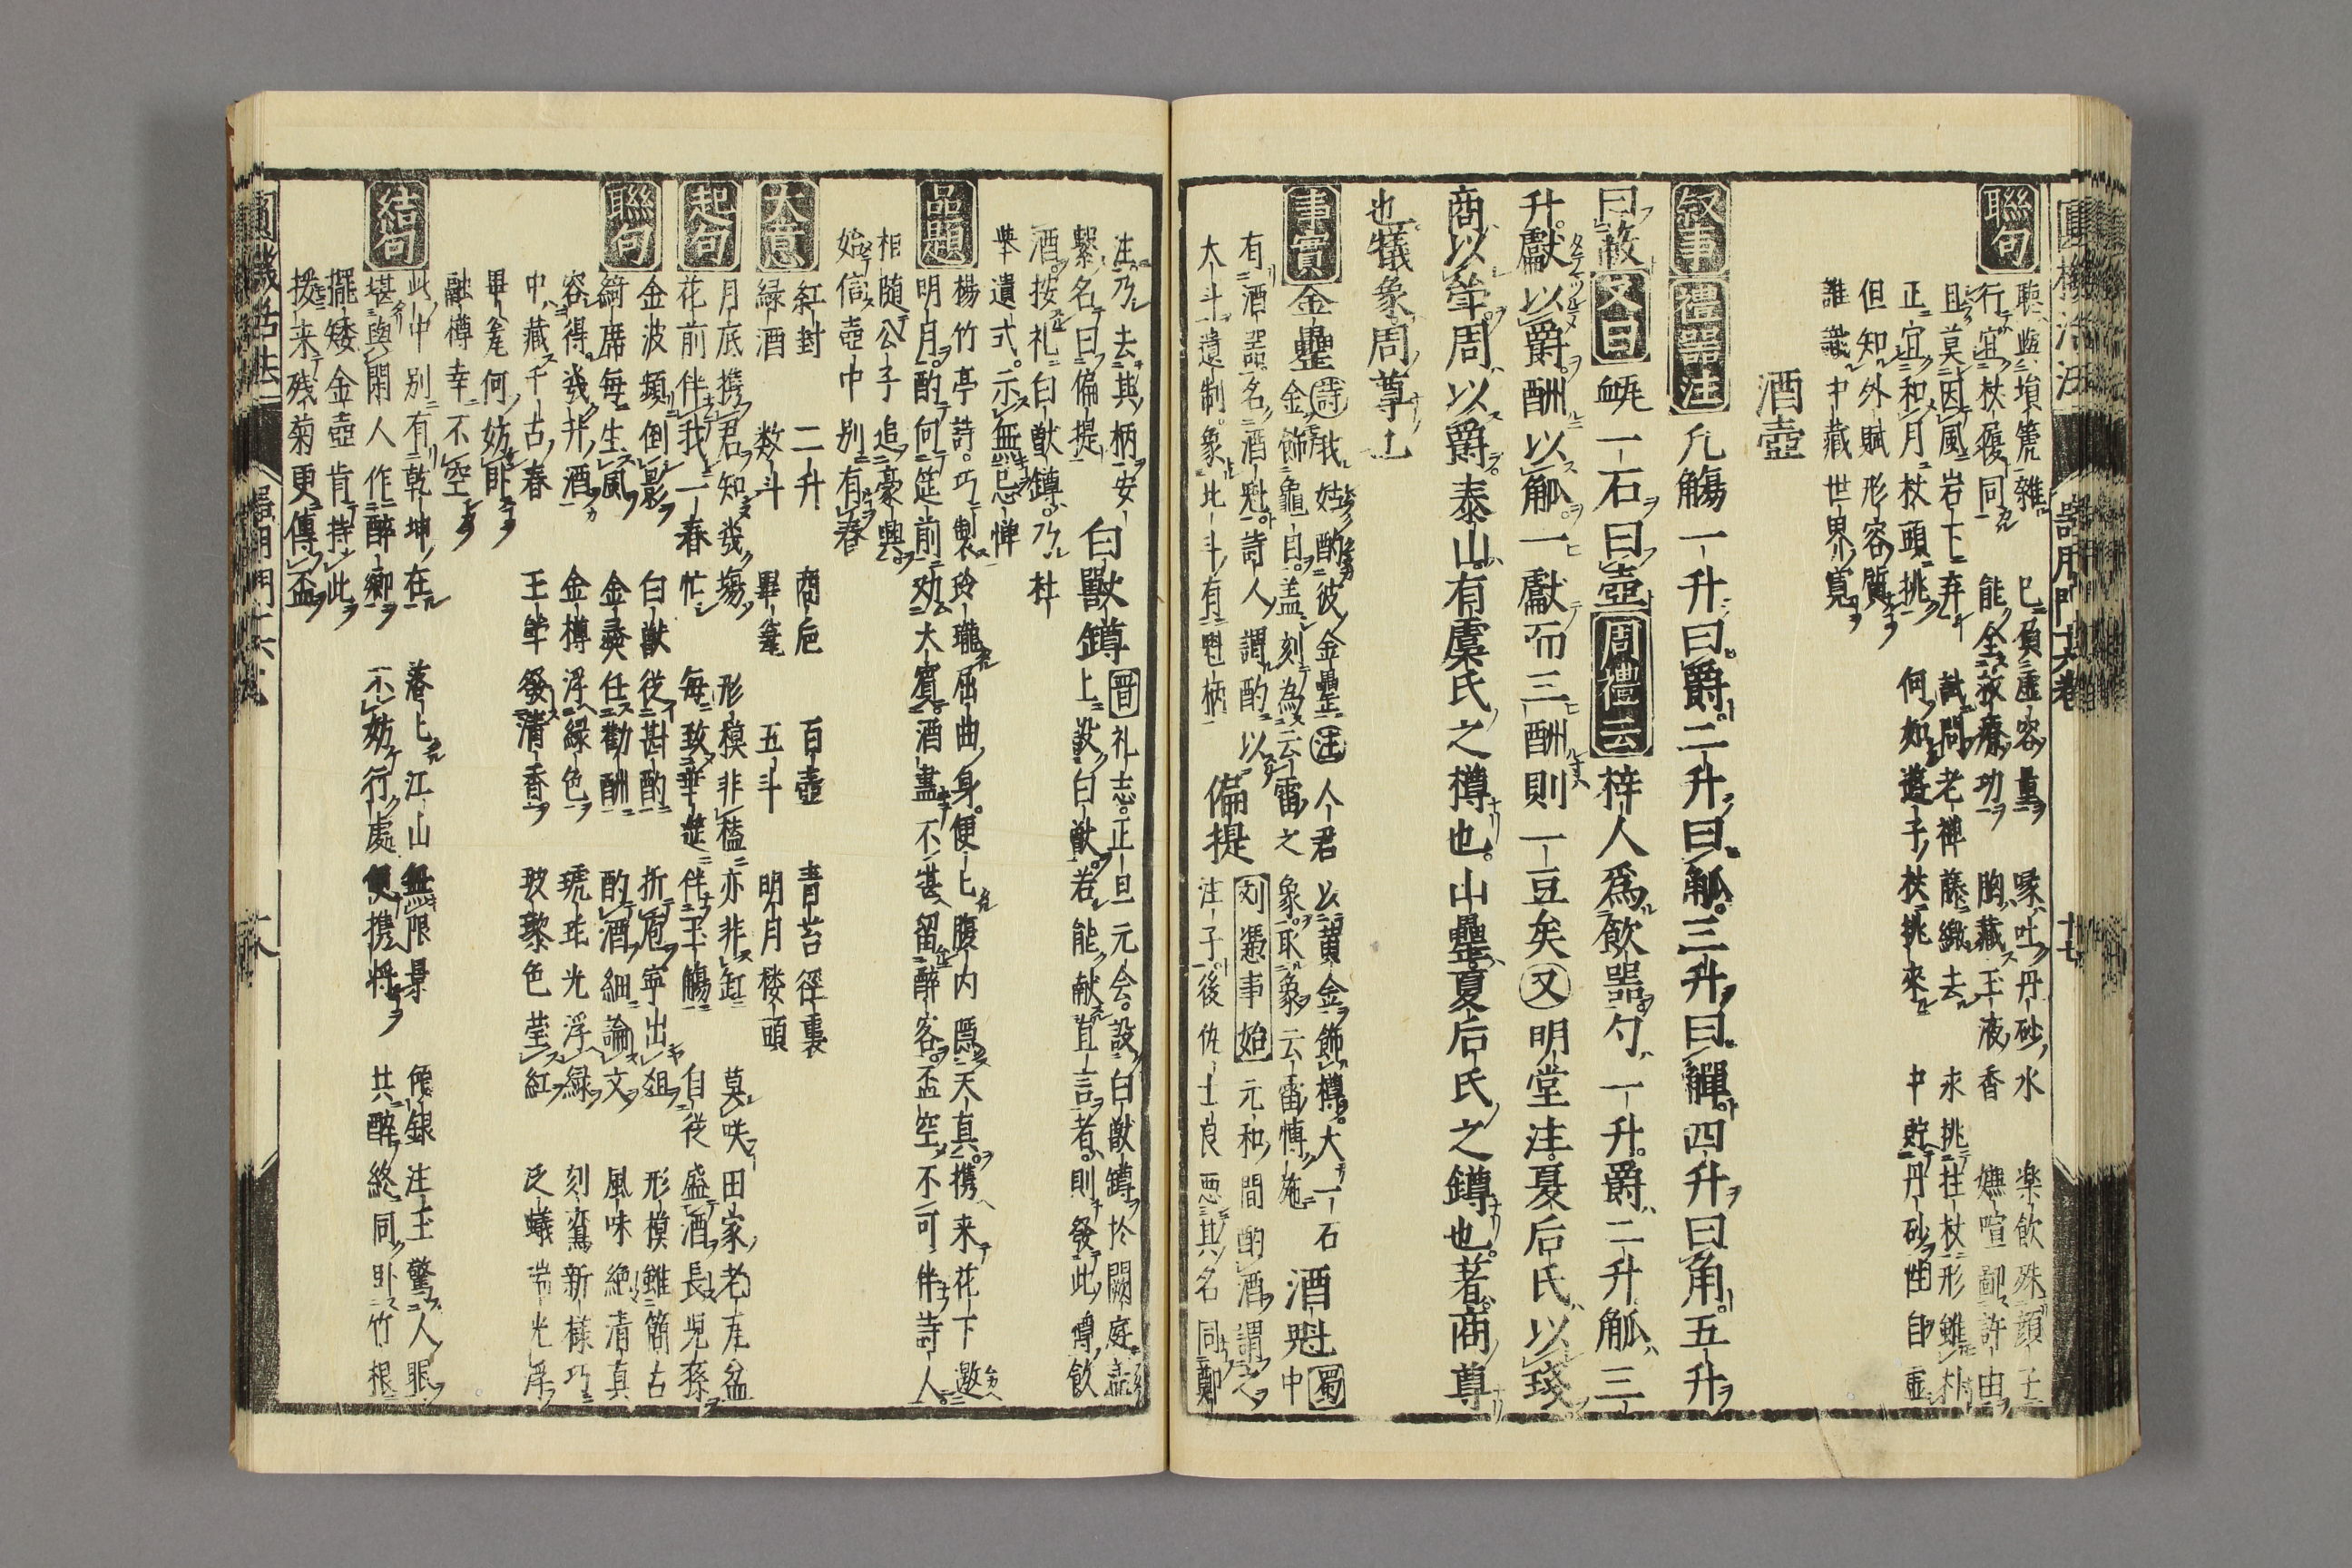 聯句
聴與塤箎雑 已負虚容量 嗽吐丹砂水 楽飲殊顔子
行宜杖履同 能全救療功 胸藏玉液香 嫌喧鄙許由
且莫因風岩下弃 試問老禅藤繳去 未挑拄杖形雖朴
正宜和月杖頭挑 何如遊子杖挑来 中貯丹砂性自虚
但知外賦形容質
誰識中藏世界寛
酒壺
叙事 禮器注 凡觴一升曰爵二升曰觚三升曰觶四升曰角五升
曰散 又曰 瓻一石曰壺 周禮云 梓人爲飲器勺一升爵二升觚三
升獻以爵酬以觚一獻而三酬則一豆矣 又 明堂注夏后氏以琖
商以斝周以爵泰山有虞氏之樽也山罍夏后氏之罇也著商尊
也犠象周尊上
事實 金罍 詩 我姑酌彼金罍 注 人君以黄金飾樽大一石
金飾龜目盖刻為云雷之象取象云雷博施 酒魁 蜀 中
有酒器名酒魁詩人謂酌以
大斗遺制象北斗有魁柄 偏提 刘馮事始 元和間酌酒謂之
注子後佐士良悪其名同鄭
注乃去其柄安
繋名曰偏提 白獸罇 晋 礼志正旦元会設白獣罇於闕庭盖
上 白獣若能献直言者則發此樽飲
酒按礼白獣罇乃杜
挙遺式示無忌憚
品題 楊竹亭詩巧製玲瓏屈曲身便上腹内隠天真携来花下邀
明月酌向筵前劝大賓酒盡不堪留醉客盃空不可伴詩人
相随公子追豪興
始信壺中别有春
大意 紅封 二升 商巵 百壺 青苔径裏
緑酒 数斗 畢篭 五斗 明月楼頭
起句 月底携君知幾塲 形模非榼亦非缸 莫咲田家老瓦盆
花前伴我一春忙 毎致華筵伴玉觴 自従盛酒長児孫
聯句 金波頻倒影 白獣従斟酌 折 寧出爼 形模雖簡古
綺席毎生風 金彝任勸酬 酌酒細論文 風味絶清真
容得幾升酒 金樽浮緑色 琥 光浮緑 刻 新樣巧
中藏千古春 玉斝發清香 玻瓈色瑩紅 泛蟻 光浮
畢 何妨卧
融樽幸不空
結句 此中别有乾坤在 落上江山無限景 傾銀注玉驚人眼
堪與閑人作醉郷 不妨行處便携将 共醉終同卧竹根
擺矮金壺肯持此
挼来残菊更傳盃